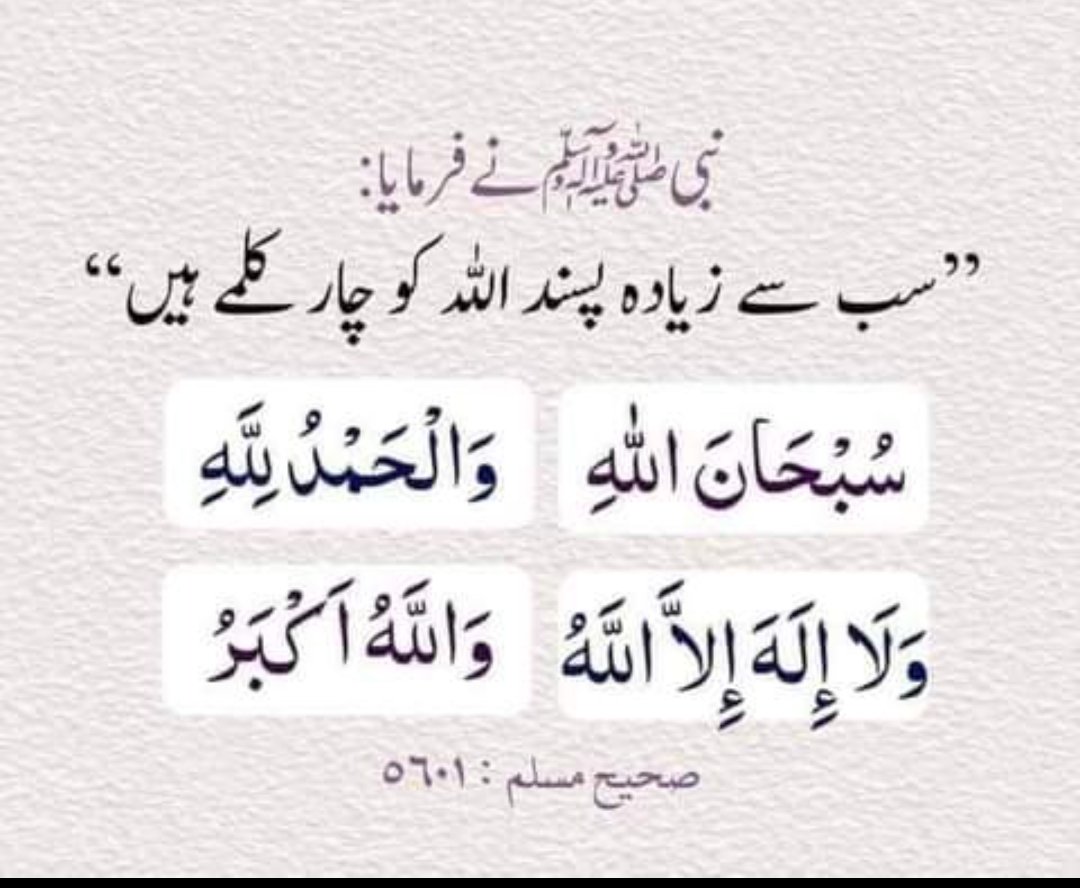 نبی ﷺ نے فرمایا:
”سب سے زیادہ پسند اللہ کو چار کلمے ہیں“
سُبْحَانَ اللّٰهِ وَالْحَمْدُ لِلَّهِ
وَلَا إِلَهَ إِلاَّ اللَّهُ وَاللَّهُ اَكْبَرُ
صحیح مسلم : ٥٦٠١